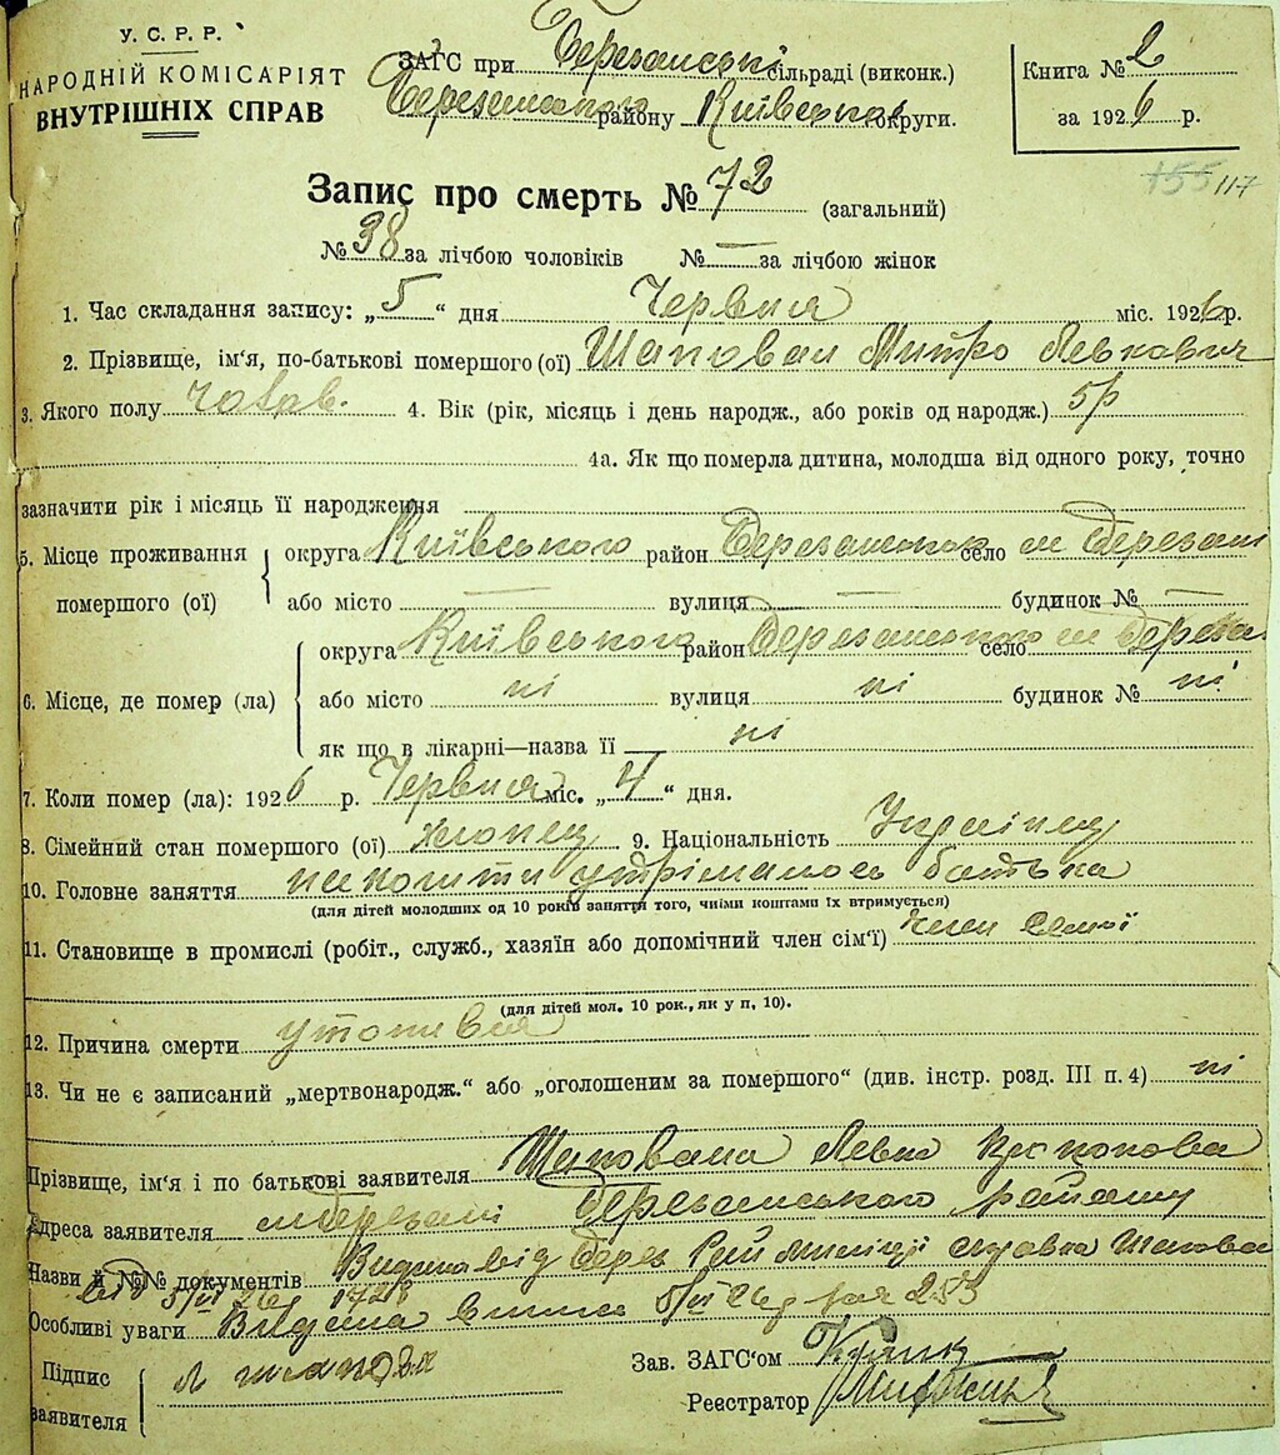 У. С. Р. Р.
НАРОДНІЙ КОМІСАРІЯТ
ВНУТРІШНІХ СПРАВ
ЗАГС при Березанські сільраді (виконк.)
Березанського району Київської округи.
Книга № 2
за 1926 р.
155 117
Запис про смерть № 72 (загальний)
№ 38 за лічбою чоловіків № — за лічбою жінок
1. Час складання запису: „5“ дня Червня міс. 1926 р.
2. Прізвище, ім‘я, по-батькові помершого (ої) Шаповал Митро Левкович
3. Якого полу 4. Вік (рік, місяць і день народж., або років од народж.) 5 р
4а. Як що померла дитина, молодша від одного року, точно
зазначити рік і місяць її народження
5. Місце проживання помершого (ої) округа Київського район Березанського село м Березані
або місто — вулиця — будинок № —
6. Місце, де помер (ла) округа Київського район Березанського село м Береза
або місто ні вулиця ні будинок № ні
як що в лікарні—назва її ні
7. Коли помер (ла): 1926 р. Червня міс. „4“ дня.
8. Сімейний стан помершого (ої) хлопец 9. Національність Украінец
10. Головне заняття на кошти утрімалось батька
(для дітей молодших од 10 років заняття того, чиїми коштами їх втримується)
11. Становище в промислі (робіт., служб., хазяїн або допомічний член сім‘ї) член семьї
(для дітей мол. 10 рок., як у п, 10).
12. Причина смерти утопився
13. Чи не є записаний „мертвонародж.“ або „оголошеним за помершого“ (див. інстр. розд. III п. 4) ні
Прізвище, ім‘я і по батькові заявителя Шаповала Левка
Адреса заявителя м Березані Березанського району
Назви й №№ документів Видана від Берез Рай Міліції справка Шапова
від 5/VI 26 1728
Особливі уваги Видана 5/VI 26 за № 253
Підпис заявителя Л шаповал
Зав. ЗАГС‘ом
Реєстратор